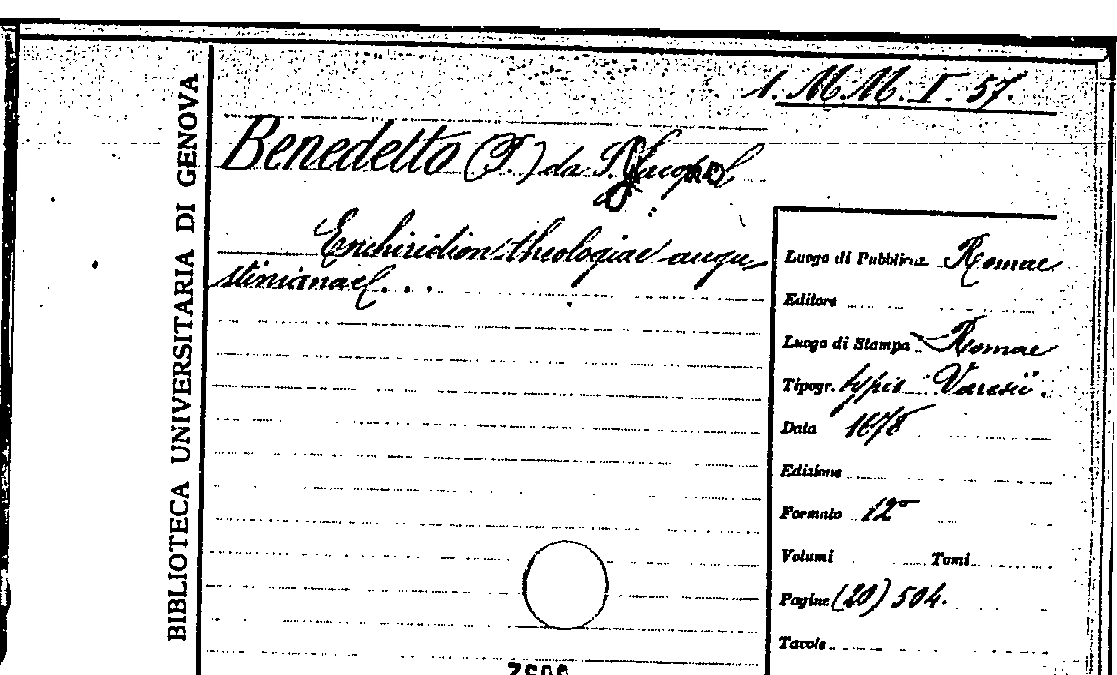 1. M.M. I. 57.
BIBLIOTECA UNIVERSITARIA DI GENOVA
Benedetto (P.) da S. Jacopo
Enchiridion theologiae augu-
stinianae...
Luogo di Pubblica. Romae
Editore
Luogo di Stampa Romae
Tipogr. typis Varesii.
Data 1678
Edizione
Formato 12°
Volumi Tomi
Pagine (20) 504.
Tavole